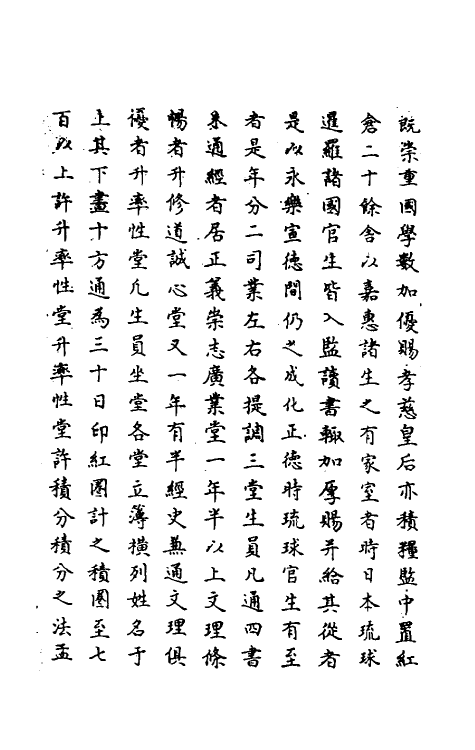 既崇重國學數加優賜孝慈皇后亦積糧監中置紅
倉二十餘舍以嘉惠諸生之有家室者時日本琉球
暹羅諸國官生皆入監讀書輙加厚賜并給其從者
是以永樂宣德間仍之成化正德時琉球官生有至
者是年分二司業左右各提調三堂生員凡通四書
未通經者居正義崇志廣業堂一年半以上文理條
暢者升修道誠心堂又一年有半經史兼通文理俱
優者升率性堂凡生員坐堂各堂立簿橫列姓名于
上其下盡十方通為三十日印紅圏計之積圏至七
百以上許升率性堂升率性堂許積分積分之法孟